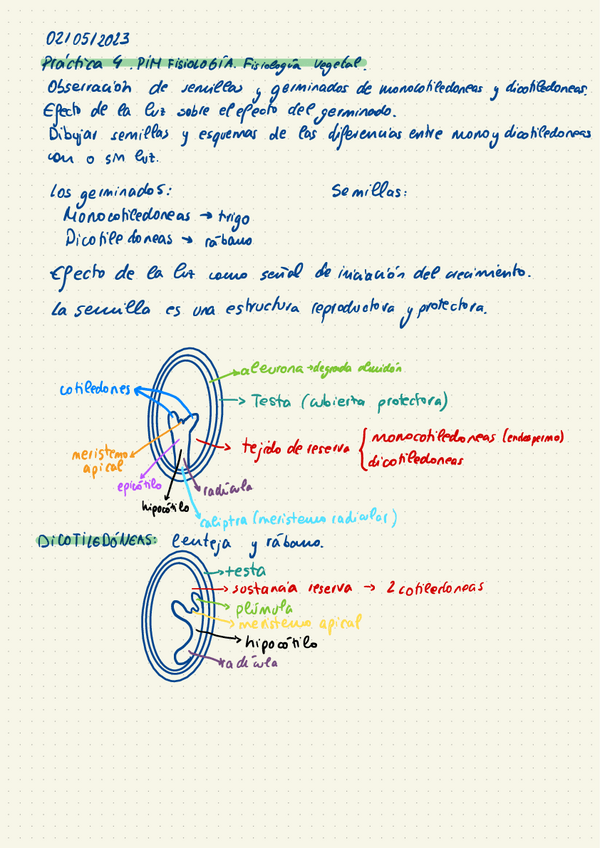 02/05/2023
Práctica 4. PIM FISIOLOGÍA. Fisiología Vegetal.
Observación de semillas y germinados de monocotiledoneas y dicotiledoneas.
Efecto de la luz sobre el efecto del germinado.
Dibujar semillas y esquemas de las diferencias entre mono y dicotiledoneas
con o sin luz.
Los germinados: Semillas:
Monocotiledoneas → trigo
Dicotiledoneas → rábano
Efecto de la luz como señal de iniciación del crecimiento.
La semilla es una estructura reproductora y protectora.
aleurona → degrada almidón
cotiledones
Testa (cubierta protectora)
tejido de reserva { monocotiledoneas (endospermo)
dicotiledoneas
meristemo
apical
epicótilo
radícula
hipocótilo
caliptra (meristemo radicular)
DICOTILEDÓNEAS: lenteja y rábano.
testa
sustancia reserva → 2 cotiledoneas
plúmula
meristemo apical
hipocótilo
radícula